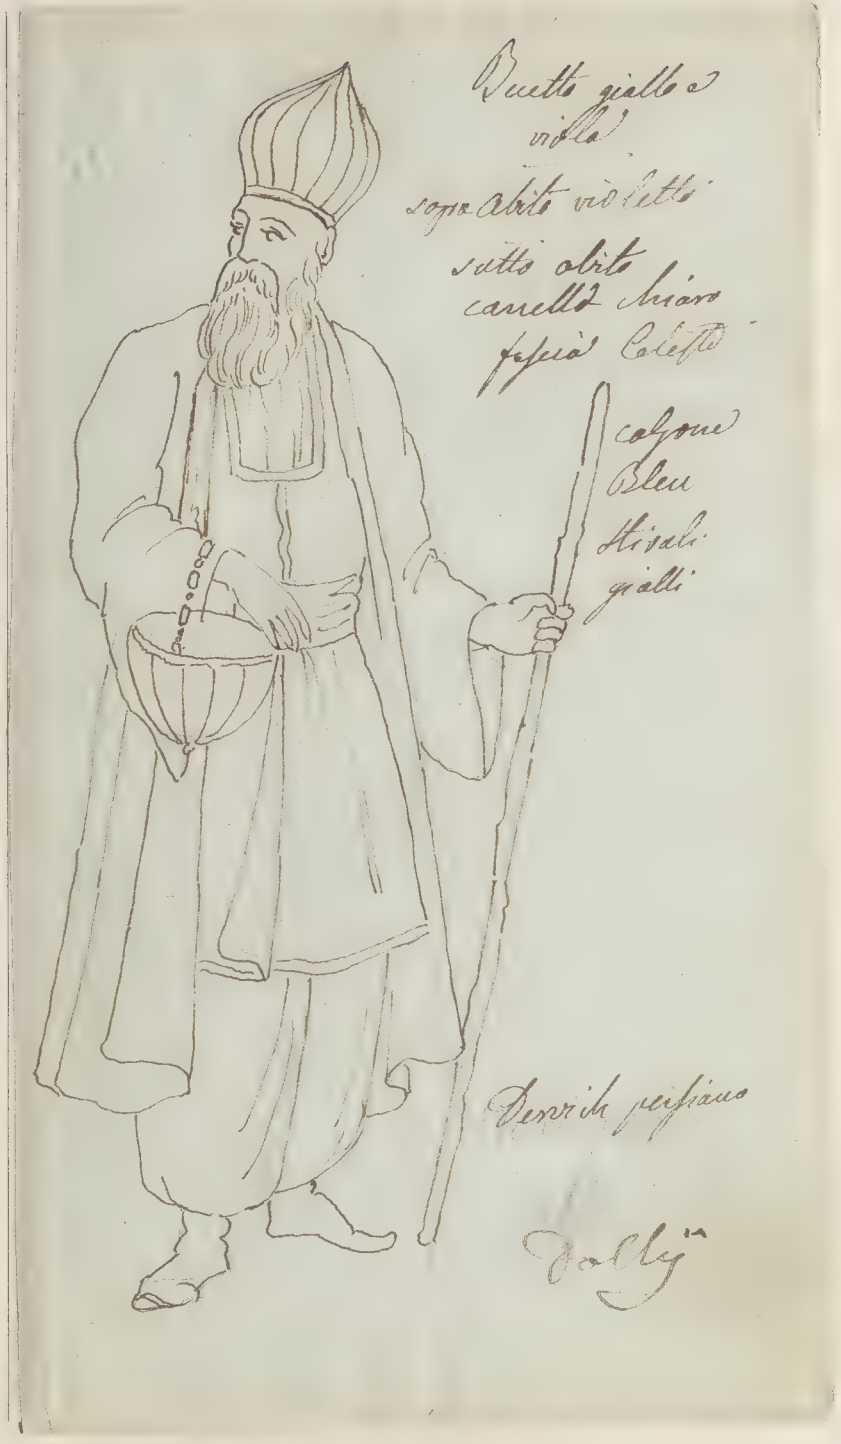 Buetto giallo e
viola
sopra abito violetto
sutto abito
cannella chiaro
fascia Celeste
calzone
Bleu
stivali
gialli
Dervich persiano